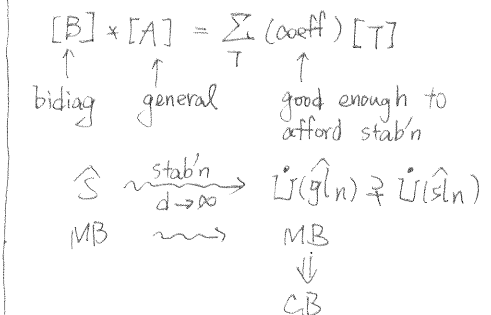 [B] * [A] = Σ_T (coeff) [T]
↑ ↑ ↑
bidiag general good enough to
afford stab'n
Ŝ stab'n d→∞ U̇(ĝl_n) ⊋ U̇(ŝl_n)
MB ⇝ MB
⇓
CB